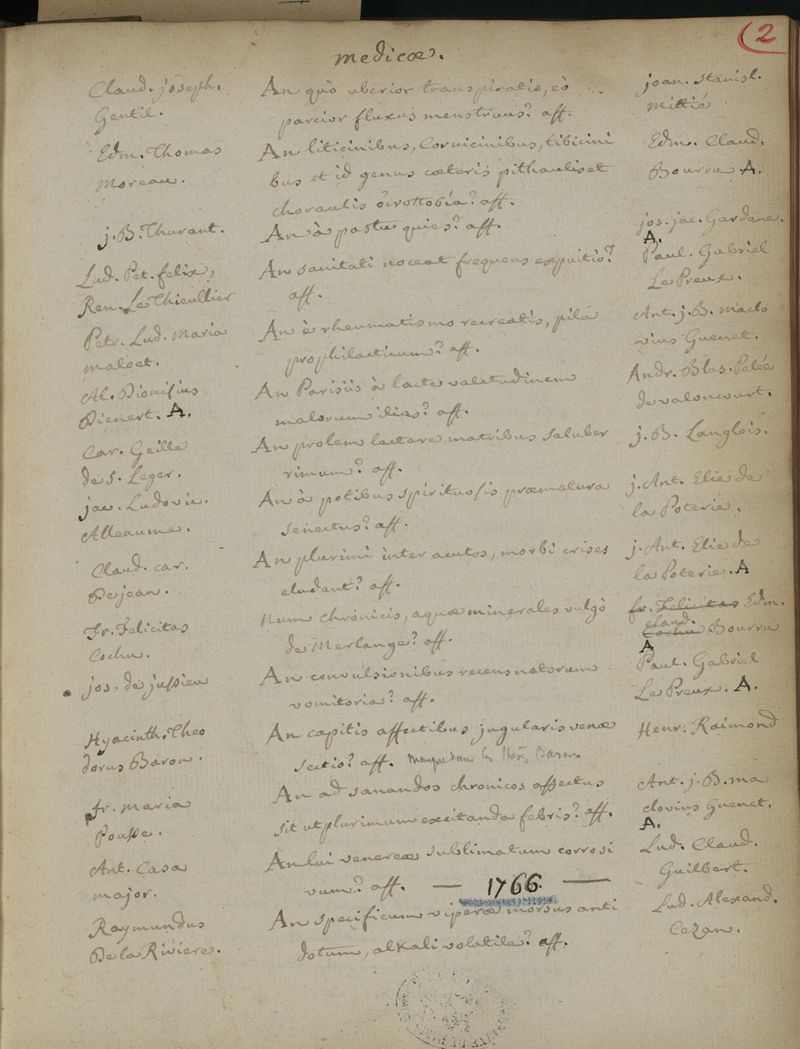 2
medicæ.
Claud. joseph. An quò uberior transpiratio, eò joan. Stanisl.
Gentil. parcior fluxus menstruus? aff. Mittié
Edm. Thomas An liticinibus, Cornicinibus, tibicini Edm. Claud.
Moreau. bus et id genus cæteris pithaulis et Bourru A.
choraulis aff.
j. B. Thurant. An à pastu quies? aff. jos. jac. Gardane.
A.
Lud. Pet. felix, An sanitati noceat frequens exputio? Paul. Gabriel
Ren. Le Thieullier aff. Le Preux.
Petr. Lud. Maria An è rheumatismo recreatis, pila Ant. j. B. maclo
maloet. prophilacticum? aff. vius Guenet.
Al. Dionisius An Parisiis à lacte valetudinem Andr. Blas. Pelée
Dienert. A. malorum ilias? aff. de valoncourt.
Car. Geille An prolem lactare matribus saluber j. B. Langlois.
de S. Leger. rimum? aff.
jac. Ludovic. An à potibus spirituosis præmatura j. Ant. Elie de
Alleaume. senectus? aff. la Poterie.
Claud. car. An plurimi inter acutos, morbi crises j. Ant. Elie de
Dejean. eludant? aff. la Poterie. A
Fr. Felicitas Num chronicis, aquæ minerales vulgò fr. Felicitas Edm.
claud.
Cochu. de Merlange? aff. Cochu Bourru
A
jos. de jussieu An convulsionibus recens natorum Paul. Gabriel
vomitoria? aff. Le Preux. A.
Hyacinth. Theo An capitis affectibus jugularis venæ Henr. Raimond
dorus Baron. sectio? aff. manque dans les Thès. Baron
fr. Maria An ad sanandos chronicos affectus Ant. j. B. ma
Pousse. sit utplurimum excitanda febris? aff. clovius Guenet.
A.
Ant. Casa An lui venereæ sublimatum corrosi Lud. Claud.
major. vum? aff. — 1766. — Guilbert.
Raymundus An specificum viperæ morsus anti Lud. Alexand.
De la Riviere. dotum, alkali volatile? aff. Cezan.